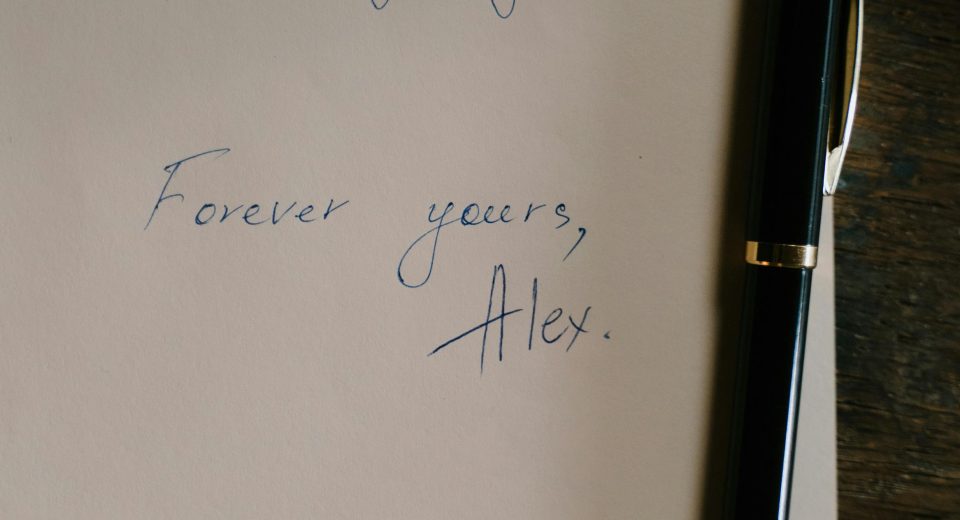 Forever yours,
Alex.